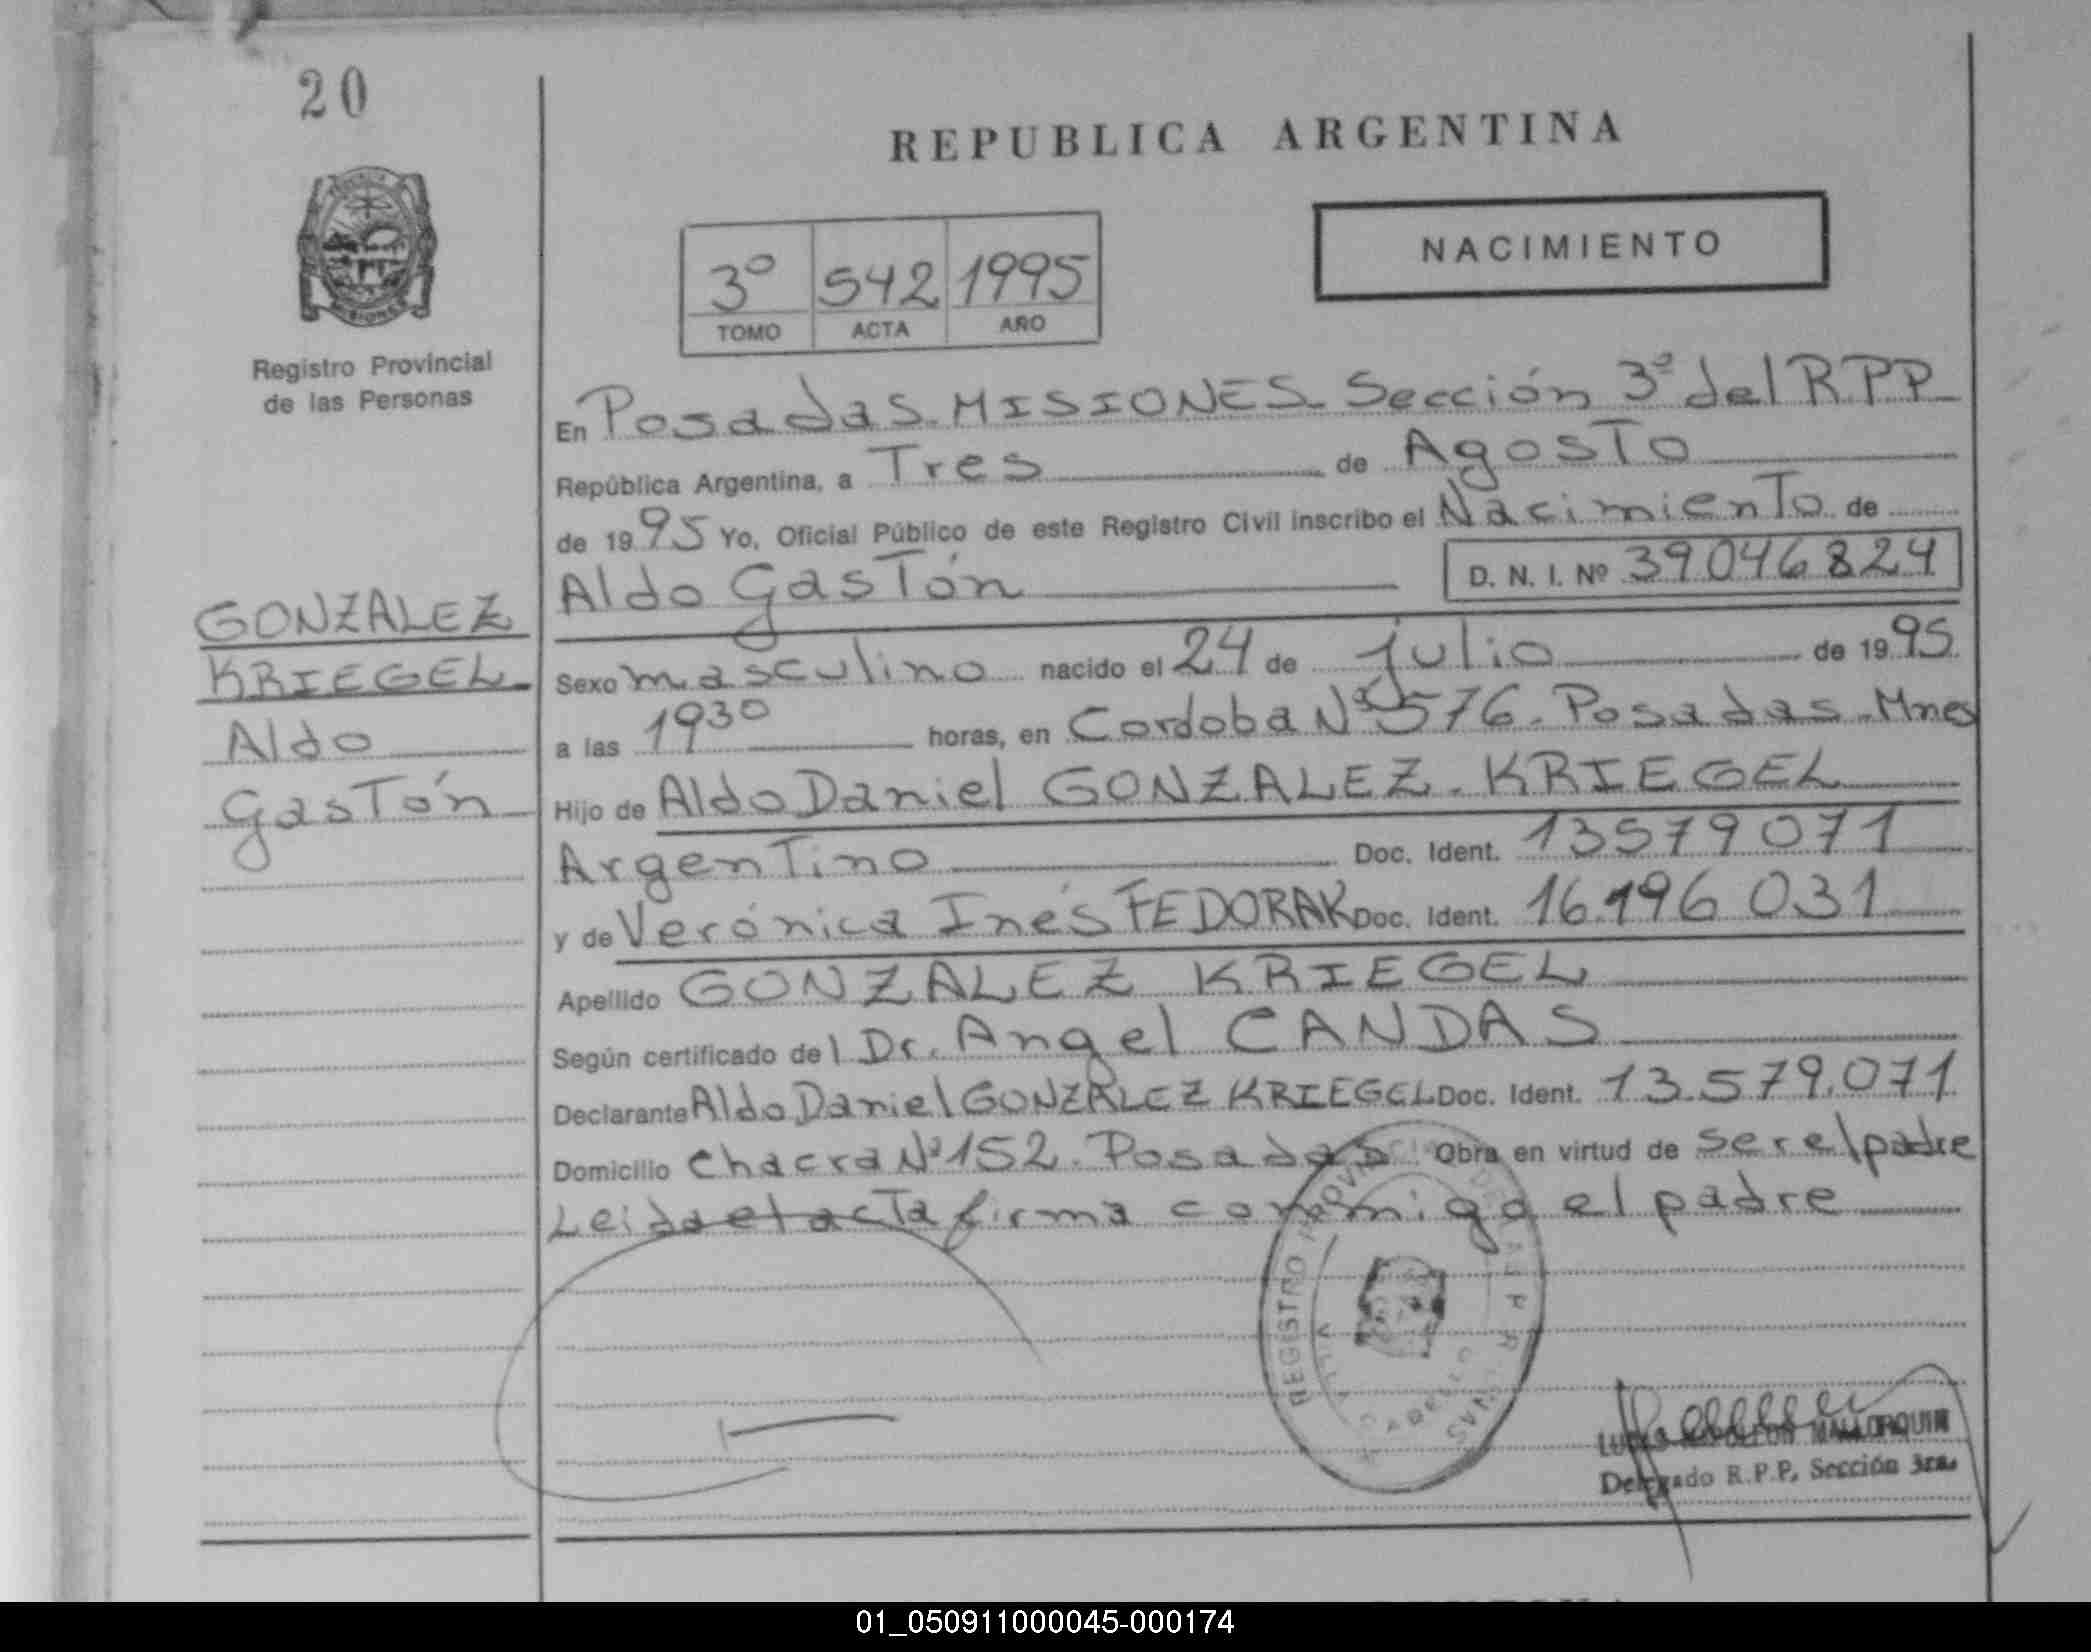 20
REPUBLICA ARGENTINA
NACIMIENTO
3º 542 1995
TOMO ACTA AÑO
Registro Provincial
de las Personas
En Posadas. MISIONES. Sección 3ª del R.P.P.
República Argentina, a Tres de Agosto
de 1995 Yo, Oficial Público de este Registro Civil inscribo el Nacimiento de
Aldo Gastón D. N. I. Nº 39046824
GONZALEZ
KRIEGEL
Aldo
Gastón
Sexo masculino nacido el 24 de julio de 1995
a las 19 30 horas, en Cordoba Nº 576. Posadas. Mnes
Hijo de Aldo Daniel GONZALEZ. KRIEGEL
Argentino Doc. Ident. 13579071
y de Verónica Inés FEDORAK Doc. Ident. 16.196 031
Apellido GONZALEZ KRIEGEL
Según certificado del Dr. Angel CANDAS
Declarante Aldo Daniel GONZALEZ KRIEGEL Doc. Ident. 13.579.071
Domicilio Chacra Nº 152. Posadas Obra en virtud de ser el padre
Leida el acta firma conmigo el padre
REGISTRO PROVINCIAL DE LAS PERSONAS
VILLA CABELLO
MALLORQUIN
Delegado R.P.P. Sección 3ra.
01_050911000045-000174